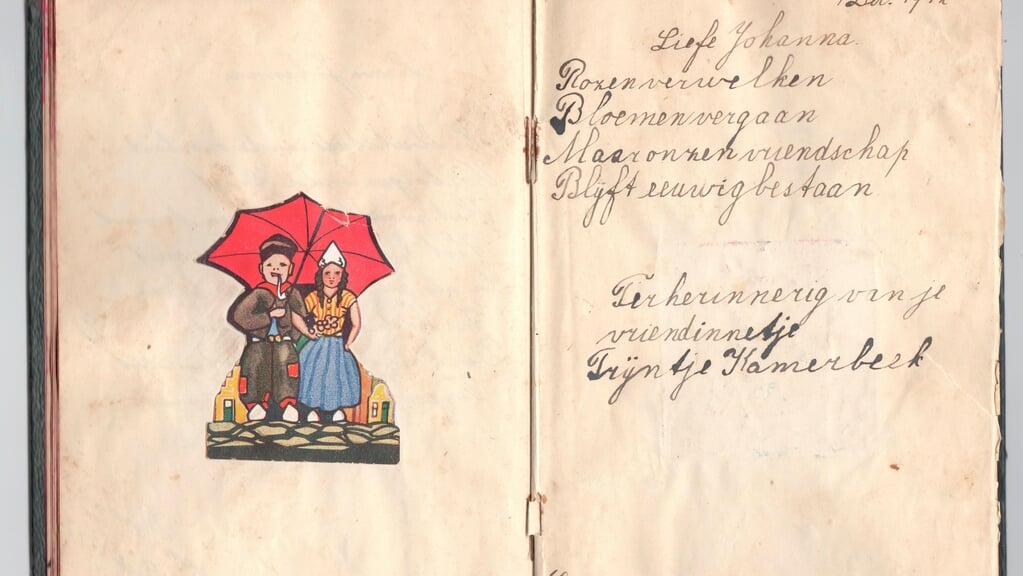 Liefe Johanna.
Rozen verwelken
Bloemen vergaan
Maar onzen vriendschap
Blijft eeuwig bestaan
Ter herinnerig van je
vriendinnetje
Trijntje Kamerbeek